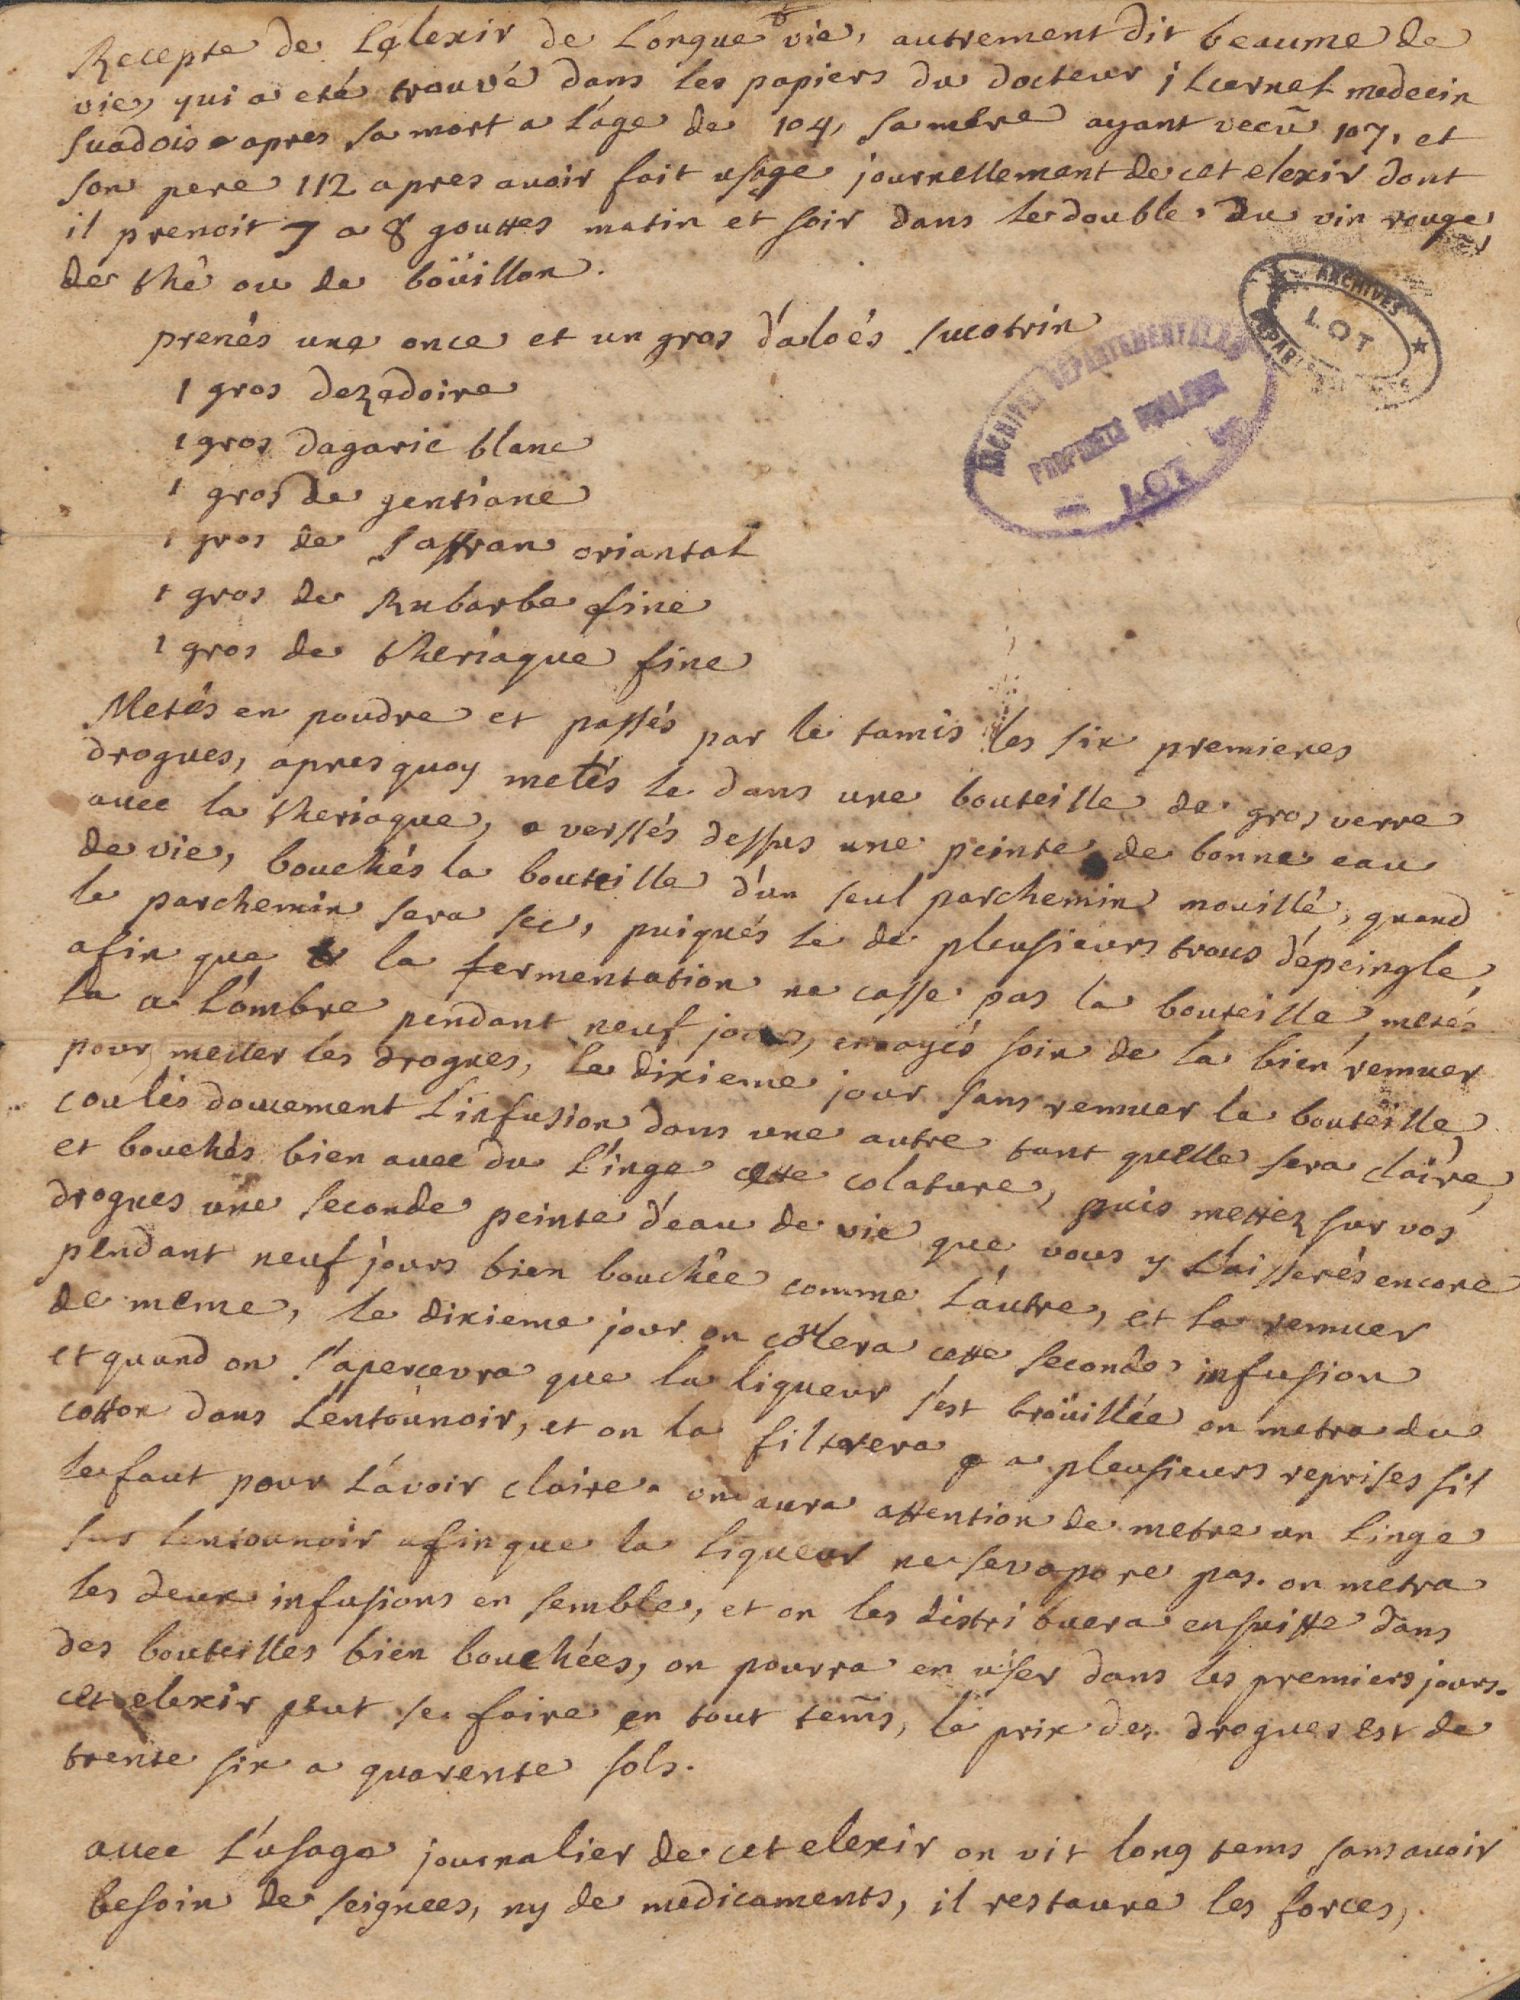 Recepte de L'élexir de Longue vie, autrement dit beaume de
vie, qui a eté trouvé dans les papiers du docteur medecin
suadois apres sa mort a l'age de 104, sa mere ayant vecu 107, et
son pere 112 apres avoir fait usage journellement de cet elexir dont
il prenoit 7 a 8 gouttes matin et soir dans le double du vin rouge,
de thé ou de boüillon.
ARCHIVES
LOT
ARCHIVES DEPARTEMENTALES
PROPRIÉTÉ PUBLIQUE
LOT
prenés une once et un gros d'aloés sucotrin
1 gros dezadoire
1 gros dagaric blanc
1 gros de gentiane
1 gros de saffran oriantal
1 gros de Rubarbe fine
1 gros de theriaque fine
Metés en poudre et passés par le tamis les six premieres
drogues, apres quoy metés le dans une bouteille de gros verre
avec la theriaque, verssés dessus une peinte de bonne eau
de vie, bouchés la bouteille d'un seul parchemin mouillé, quand
le parchemin sera sec, puiqués le de pleusieurs trous d'epeingle,
afin que la fermentation ne casse pas la bouteille, metés
la a l'ombre pendant neuf jours, soin de la bien remuer
pour meller les drogues, le dixieme jour sans remuer la bouteille,
coulés doucement l'infusion dans une autre tant quelle sera claire,
et bouchés bien avec du linge cette colature, puis mettez sur vos
drogues une seconde peinte d'eau de vie que vous y laisserés encore
pendant neuf jours bien bouchée comme l'autre, et la remuer
de meme, le dixieme jour on coulera cette seconde infusion
et quand on s'apercevra que la liqueur s'est broüillée on metra du
cotton dans l'entounoir, et on la filterera a pleusieurs reprises sil
le faut pour l'avoir claire. on aura attention de metre un linge
sus lentounoir afin que la liqueur ne sevapore pas. on metra
les deux infusions en semble, et on les distribuera ensuitte dans
des bouteilles bien bouchées, on pourra en user dans les premiers jours.
cet elexir peut se faire en tout tems, le prix des drogues est de
trente six a quarente sols.
avec l'usage journalier de cet elexir on vit long tems sans avoir
besoin de seignees, ny de medicaments, il restaure les forces,